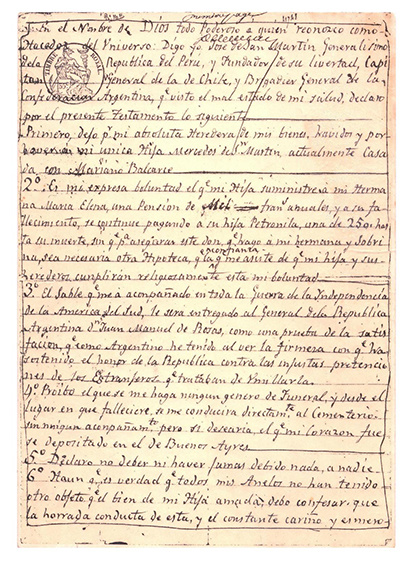 En el Nombre de DIOS todo Poderoso a quien reconozco como
Hacedor del Universo: Digo yo José de San Martin Generalisimo
dela Republica del Peru, y Fundador de su livertad, Capi
tan General de la de Chile, y Brigadier General de la
Confederacion Argentina, qe. visto el mal estado de mi salud, declaro
por el presente Testamento lo siguiente
Primero, dejo pr. mi absoluta Heredera de mis bienes, havidos y por
haver a mi unica Hija Mercedes de Sn. Martin actualmente Casa
da con Mariano Balcarce
2º. Es mi expresa boluntad el qe. mi Hija suministre a mi Herma
na Maria Elena, una Pension de Mil franos anuales, y a su fa
llecimiento, se continue pagando a su hija Petronila, una de 250 hs
ta su muerte, sin qe. pa. asegurar este don, qe. hago a mi hermana y Sobri
na, sea necesaria otra Hipoteca, qe. la confianza qe. me asiste de qe. mi hija y sus
herederos cumpliran religiosamente esta mi boluntad
3º. El Sable qe. me á acompañado en toda la Guerra de la Independencia
de la America del Sud, le sera entregado al General dela Republica
Argentina Dn. Juan Manuel de Rosas, como una prueba de la satis
faccion, qe. como Argentino he tenido al ver la firmeza con qe. ha
sostenido el honor de la Republica contra las injustas pretencio
nes de los Extranjeros qe. trataban de Umillarla.
4º. Proibo el que se me haga ningun genero de Funeral, y desde el
lugar en que falleciere, se me conducira directamte. al Cementerio
sin ningun acompañamto. pero si desearia, el qe. mi Corazon fue
se depositado en el de Buenos Ayres
5º. Declaro no deber ni haver jamas debido nada, a nadie
6º. Haun qe. es verdad qe. todos mis Anelos no han tenido
otro objeto qe. el bien de mi Hija amada, debo confesar, que
la horrada conducta de esta, y el constante cariño y esmero